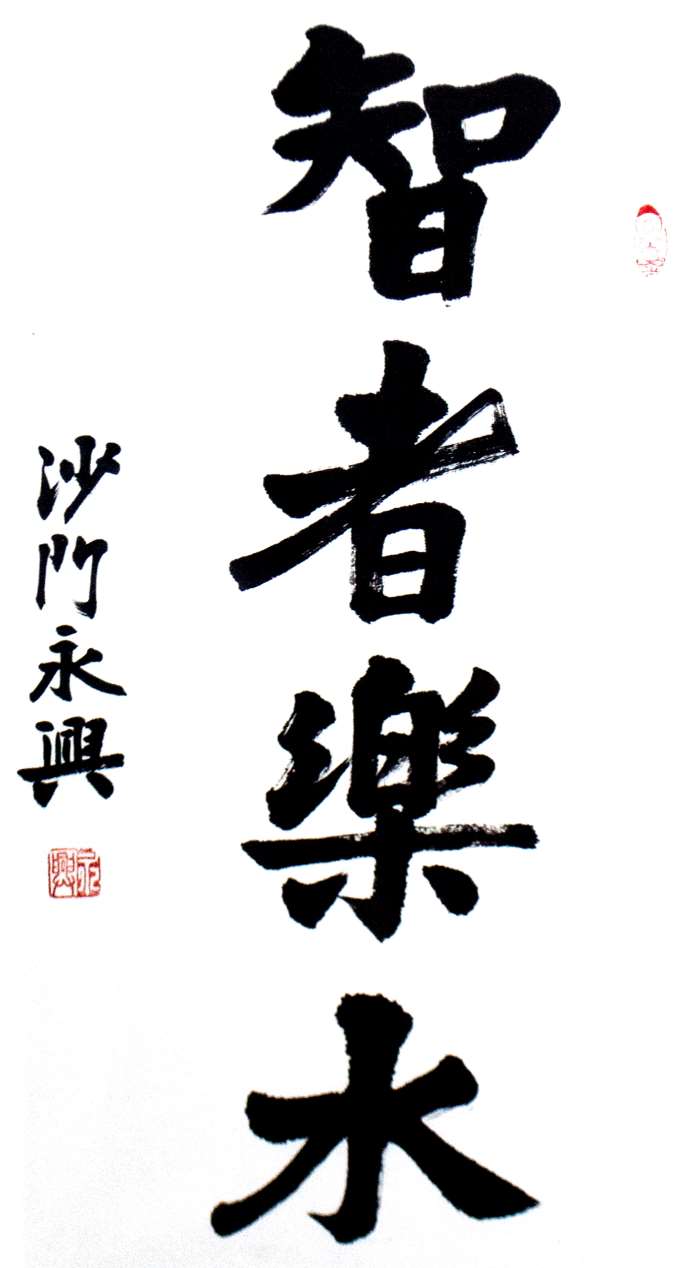 智者樂水
沙門永興
永興